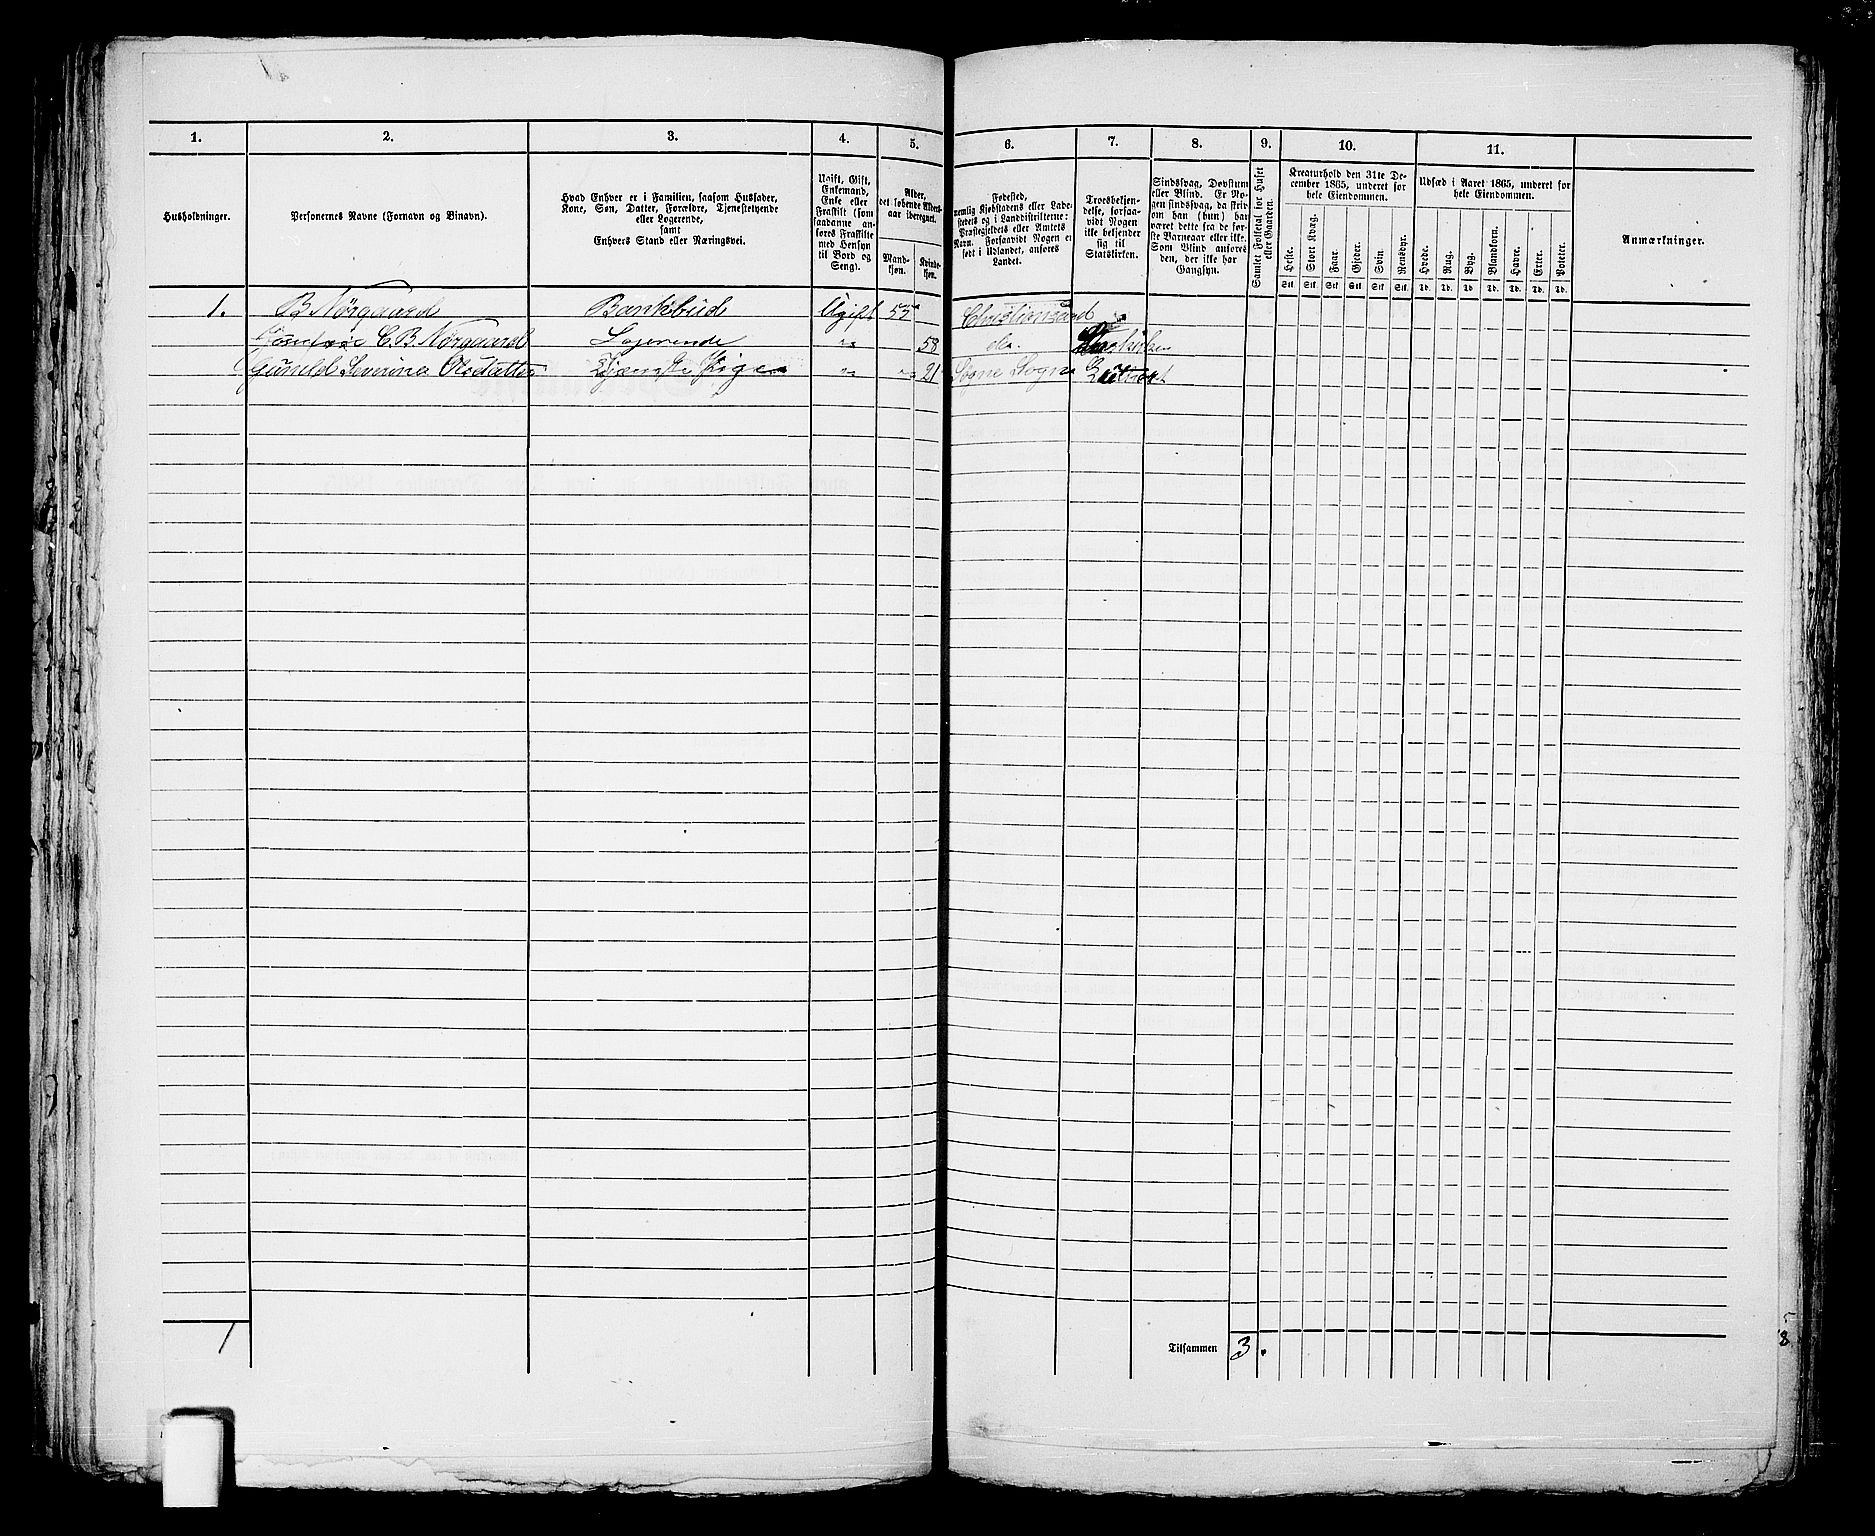 1. 2. 3. 4. 5. 6. 7. 8. 9. 10. 11.
Husholdninger.
Personernes Navne (Fornavn og Binavn).
Hvad Enhver er i Familien, saasom Husfader,
Kone, Søn, Datter, Forældre, Tjenestetyende
eller Logerende,
samt
Enhvers Stand eller Næringsvei.
Ugift, Gift,
Enkemand,
Enke eller
Fraskilt (som
saadanne an-
føres Fraskilte
med Hensyn
til Bord og
Seng).
Alder,
det løbende Alders-
aar iberegnet.
Mand-
kjøn.
Kvinde-
kjøn.
Fødested,
nemlig Kjøbstadens eller Lade-
stedets og i Landdistrikterne:
Præstegjeldets eller Amtets
Navn. Forsaavidt Nogen er
født i Udlandet, anføres
Landet.
Troesbekjen-
delse, forsaa-
vidt Nogen
ikke bekjender
sig til
Statskirken.
Sindssvag, Døvstum
eller Blind. Er No-
gen sindssvag, da skriv
om han (hun) har
været dette fra de før-
ste Barneaar eller ikke.
Som Blind anføres
den, der ikke har
Gangsyn.
Samlet Folketal for Huset
eller Gaarden.
Kreaturhold den 31te De-
cember 1865, underet for
hele Eiendommen.
Heste. Stort Kvæg. Faar. Gjeder. Svin. Rensdyr.
Stk. Stk. Stk. Stk. Stk. Stk.
Udsæd i Aaret 1865, underet for
hele Eiendommen.
Hvede. Rug. Byg. Blandkorn. Havre. Erter. Poteter.
Td. Td. Td. Td. Td. Td. Td.
Anmærkninger.
1. B Nørgaard Bankbud Ugift Christiansand
C B Nørgaard Logerende " 58 do.
Gunild Severina Tjenste Pige " " 21 Søgne Sogn
1
Tilsammen 3.